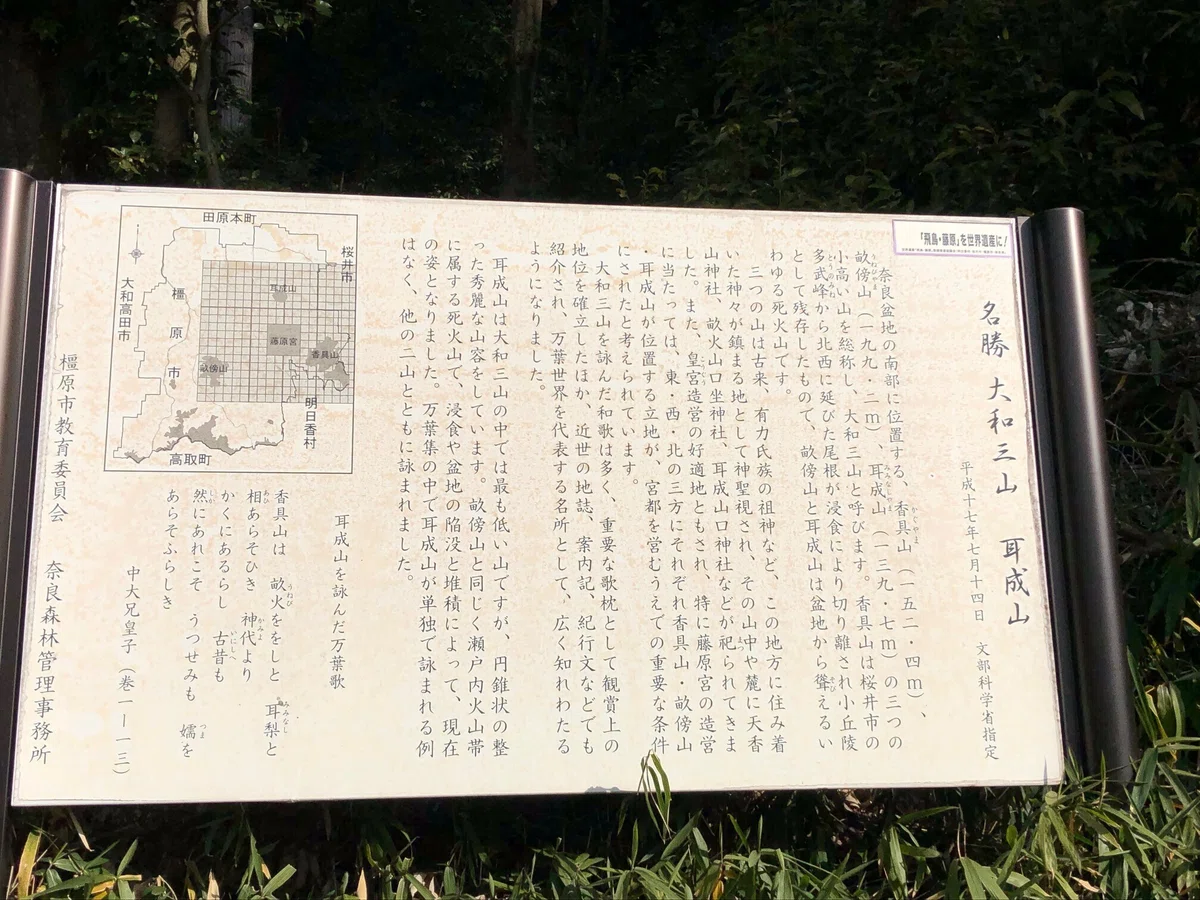 「飛鳥・藤原」を世界遺産に!
名勝 大和三山 耳成山
平成十七年七月十四日 文部科学省指定
奈良盆地の南部に位置する、香具山(一五二・四m)、
畝傍山(一九九・二m)、耳成山(一三九・七m)の三つの
小高い山を総称し、大和三山と呼びます。香具山は桜井市の
多武峰から北西に延びた尾根が浸食により切り離され小丘陵
として残存したもので、畝傍山と耳成山は盆地から聳えるい
わゆる死火山です。
三つの山は古来、有力氏族の祖神など、この地方に住み着
いた神々が鎮まる地として神聖視され、その山中や麓に天香
山神社、畝火山口坐神社、耳成山口神社などが祀られてきま
した。また、皇宮造営の好適地ともされ、特に藤原宮の造営
に当たっては、東・西・北の三方にそれぞれ香具山・畝傍山
・耳成山が位置する立地が、宮都を営むうえでの重要な条件
にされたと考えられています。
大和三山を詠んだ和歌は多く、重要な歌枕として観賞上の
地位を確立したほか、近世の地誌、案内記、紀行文などでも
紹介され、万葉世界を代表する名所として、広く知れわたる
ようになりました。
耳成山は大和三山の中では最も低い山ですが、円錐状の整
った秀麗な山容をしています。畝傍山と同じく瀬戸内火山帯
に属する死火山で、浸食や盆地の陥没と堆積によって、現在
の姿となりました。万葉集の中で耳成山が単独で詠まれる例
はなく、他の二山とともに詠まれました。
田原本町
桜井市
大和高田市
橿原市
耳成山
藤原宮
香具山
畝傍山
明日香村
高取町
耳成山を詠んだ万葉歌
香具山は 畝火ををしと 耳梨と
相あらそひき 神代より
かくにあるらし 古昔も
然にあれこそ うつせみも 嬬を
あらそふらしき
中大兄皇子(巻一―一三)
橿原市教育委員会 奈良森林管理事務所